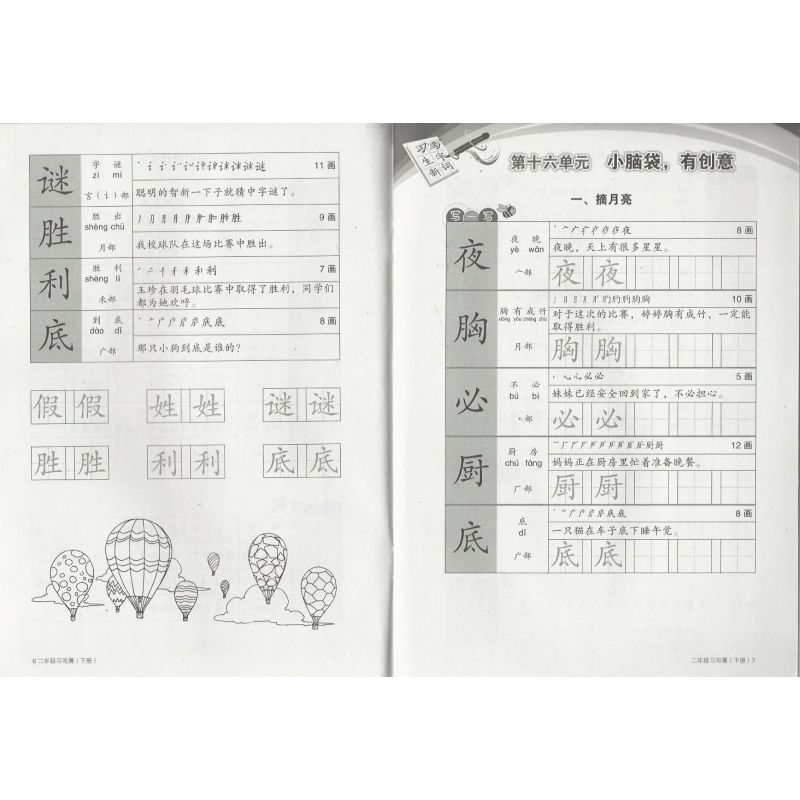 谜
字 谜
zì mí
言(讠)部
11 画
聪明的智新一下子就猜中字谜了。
胜
胜 出
shèng chū
月部
9 画
我校球队在这场比赛中胜出。
利
胜 利
shèng lì
禾部
一二千禾禾利利
7 画
玉珍在羽毛球比赛中取得了胜利，同学们
都为她欢呼。
底
到 底
dào dǐ
广部
8 画
那只小狗到底是谁的？
假 假 姓 姓 谜 谜
胜 胜 利 利 底 底
6 二年级习写簿（下册）
习写
生字
新词
第十六单元 小脑袋，有创意
一、摘月亮
写一写
夜
夜 晚
yè wǎn
亠部
8 画
夜晚，天上有很多星星。
夜 夜
胸
胸 有 成 竹
xiōng yǒu chéng zhú
月部
10 画
对于这次的比赛，婷婷胸有成竹，一定能
取得胜利。
胸 胸
必
不 必
bú bì
丶部
5 画
妹妹已经安全回到家了，不必担心。
必 必
厨
厨 房
chú fáng
厂部
12 画
妈妈正在厨房里忙着准备晚餐。
厨 厨
底
底
dǐ
广部
8 画
一只猫在车子底下睡午觉。
底 底
二年级习写簿（下册）7